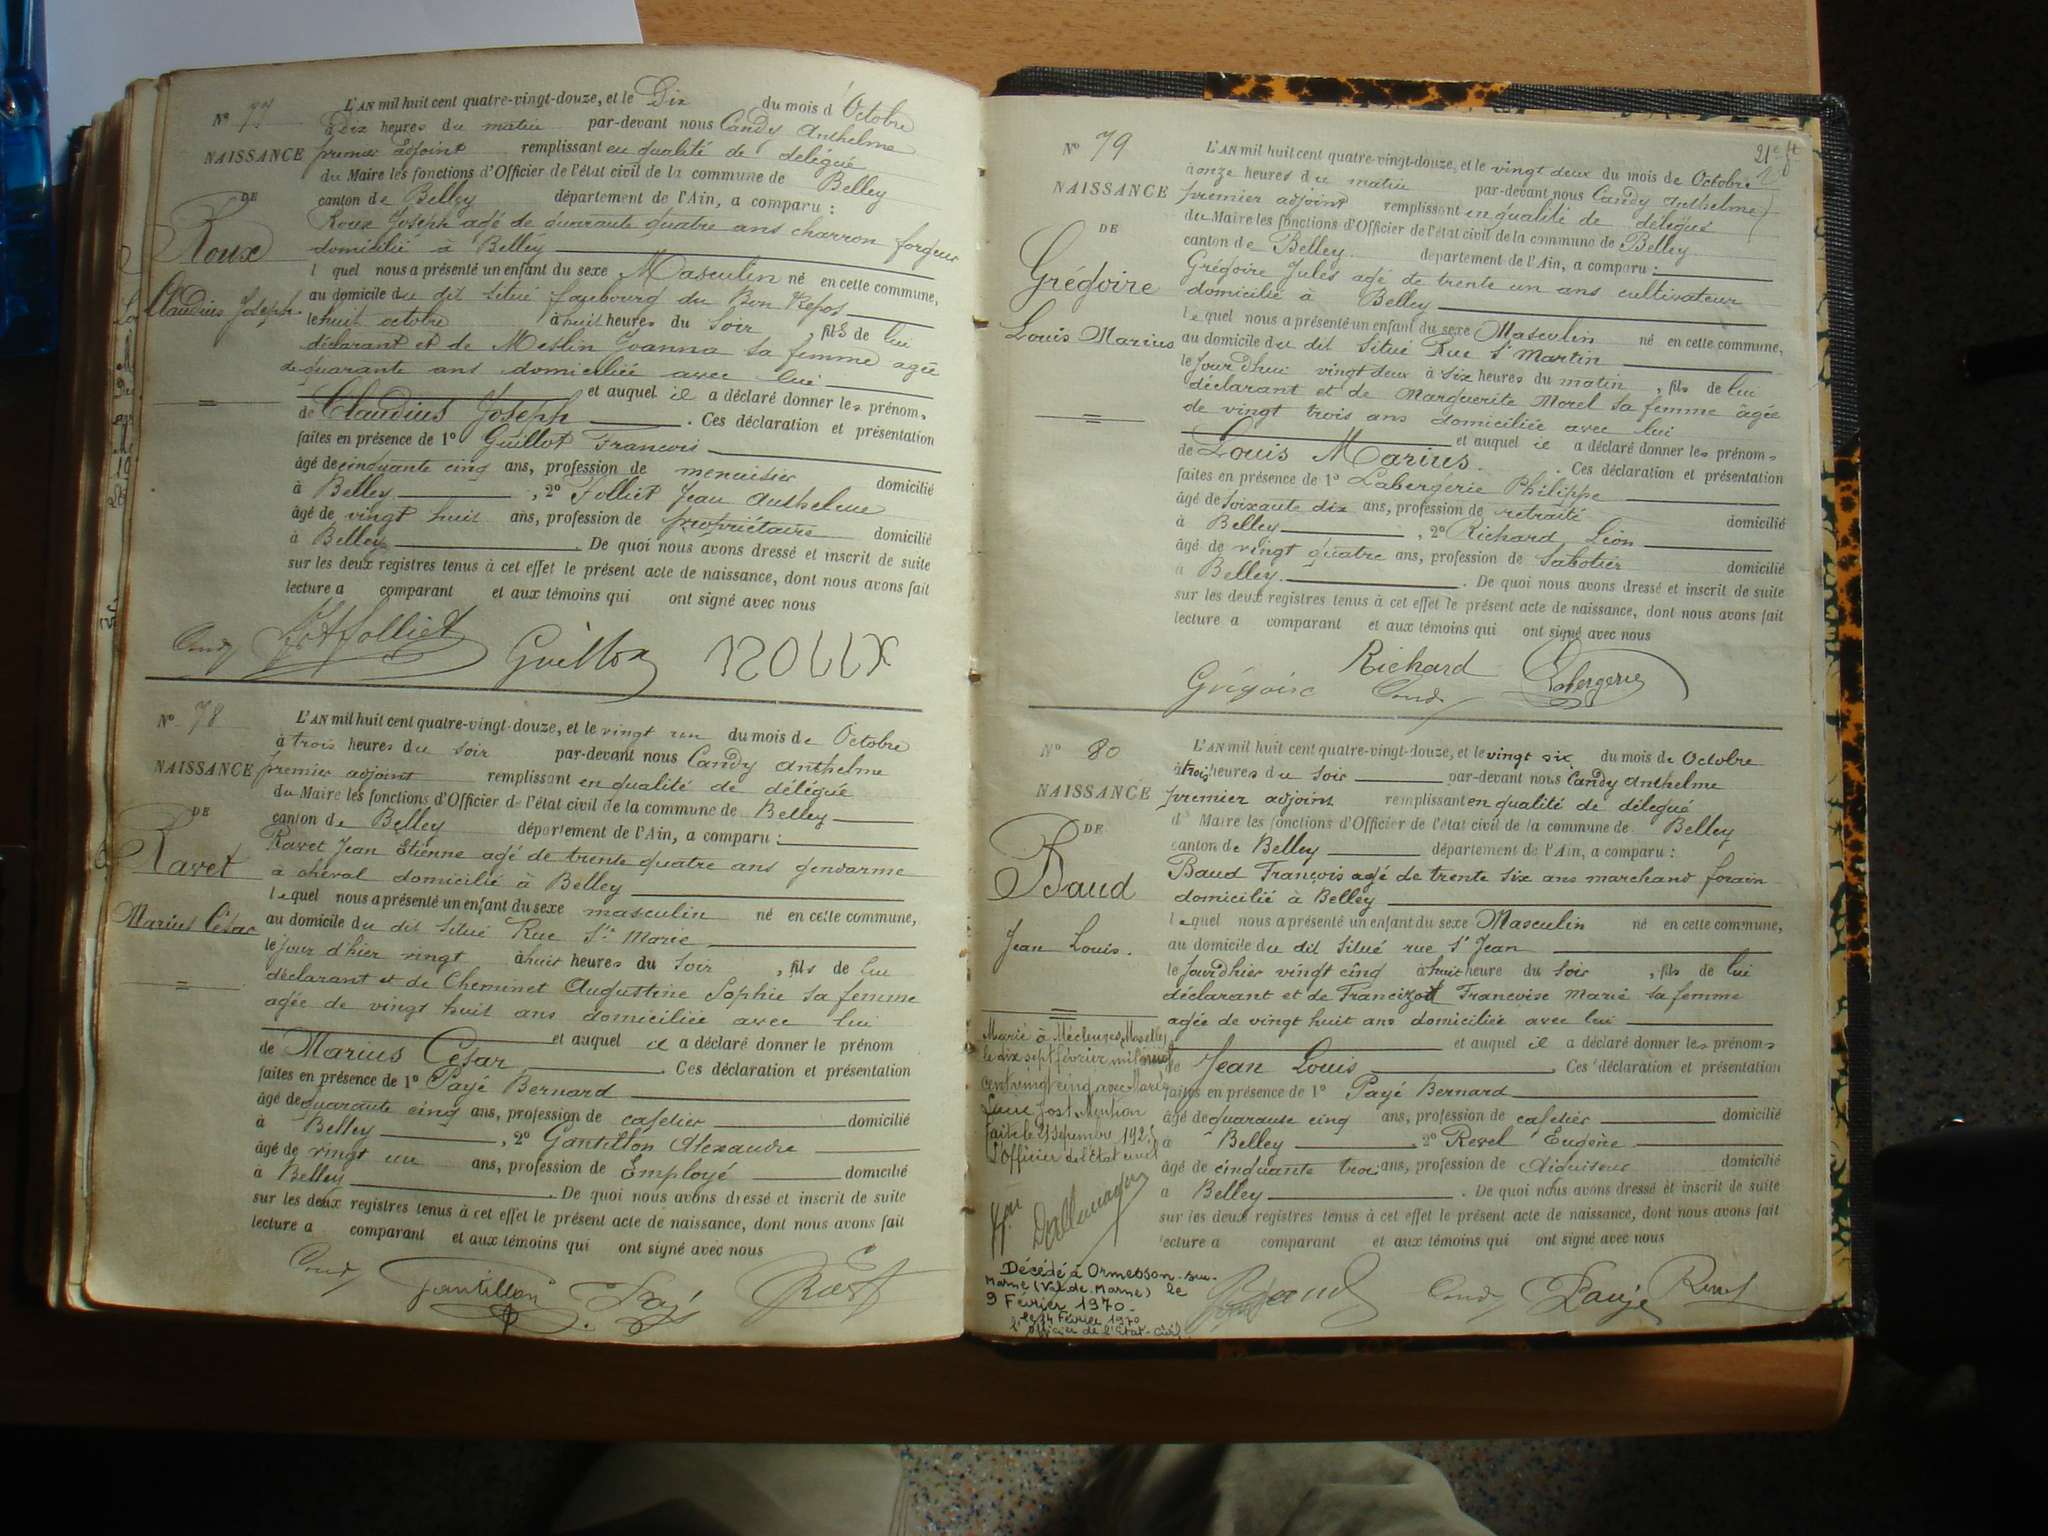 N° 77
NAISSANCE
DE
Roux
Claudius Joseph
L'AN mil huit cent quatre-vingt-douze, et le Dix du mois d'Octobre
à Dix heures du matin par-devant nous Candy Anthelme
premier adjoint remplissant en qualité de délégué
du Maire les fonctions d'Officier de l'état civil de la commune de Belley
canton de Belley département de l'Ain, a comparu :
Roux Joseph agé de quarante quatre ans charron forgeur
domicilié à Belley
lequel nous a présenté un enfant du sexe Masculin né en cette commune,
au domicile du dit situé faubourg du Bon Repos
le huit octobre à huit heures du soir, fils de lui
déclarant et de Meslin Joanna sa femme agée
de quarante ans domiciliée avec lui
et auquel il a déclaré donner les prénoms
de Claudius Joseph. Ces déclaration et présentation
faites en présence de 1° Guillot François
âgé de cinquante cinq ans, profession de menuisier domicilié
à Belley, 2° Folliet Jean Anthelme
âgé de vingt huit ans, profession de propriétaire domicilié
à Belley. De quoi nous avons dressé et inscrit de suite
sur les deux registres tenus à cet effet le présent acte de naissance, dont nous avons fait
lecture a comparant et aux témoins qui ont signé avec nous
Candy Folliet Guillot ROUX
N° 78
NAISSANCE
DE
Ravet
Marius César
L'AN mil huit cent quatre-vingt-douze, et le vingt un du mois de Octobre
à trois heures du soir par-devant nous Candy Anthelme
premier adjoint remplissant en qualité de délégué
du Maire les fonctions d'Officier de l'état civil de la commune de Belley
canton de Belley département de l'Ain, a comparu :
Ravet Jean Etienne agé de trente quatre ans gendarme
à cheval domicilié à Belley
lequel nous a présenté un enfant du sexe masculin né en cette commune,
au domicile du dit situé Rue Ste Marie
le jour d'hier vingt à huit heures du soir, fils de lui
déclarant et de Cheminet Augustine Sophie sa femme
agée de vingt huit ans domiciliée avec lui
et auquel il a déclaré donner le prénom
de Marius César. Ces déclaration et présentation
faites en présence de 1° Payé Bernard
âgé de quarante cinq ans, profession de cafetier domicilié
à Belley, 2° Gantillon Alexandre
âgé de vingt un ans, profession de Employé domicilié
à Belley. De quoi nous avons dressé et inscrit de suite
sur les deux registres tenus à cet effet le présent acte de naissance, dont nous avons fait
lecture a comparant et aux témoins qui ont signé avec nous
Candy Gantillon Payé Ravet
21e ft
N° 79
NAISSANCE
DE
Grégoire
Louis Marius
L'AN mil huit cent quatre-vingt-douze, et le vingt deux du mois de Octobre
à onze heures du matin par-devant nous Candy Anthelme
premier adjoint remplissant en qualité de délégué
du Maire les fonctions d'Officier de l'état civil de la commune de Belley
canton de Belley département de l'Ain, a comparu :
Grégoire Jules agé de trente un ans cultivateur
domicilié à Belley
lequel nous a présenté un enfant du sexe Masculin né en cette commune,
au domicile du dit situé Rue St Martin
le jourdhui vingt deux à six heures du matin, fils de lui
déclarant et de Marguerite Morel sa femme âgée
de vingt trois ans domiciliée avec lui
et auquel il a déclaré donner les prénoms
de Louis Marius. Ces déclaration et présentation
faites en présence de 1° Labergerie Philippe
âgé de soixante dix ans, profession de retraité domicilié
à Belley, 2° Richard Léon
âgé de vingt quatre ans, profession de Sabotier domicilié
à Belley. De quoi nous avons dressé et inscrit de suite
sur les deux registres tenus à cet effet le présent acte de naissance, dont nous avons fait
lecture a comparant et aux témoins qui ont signé avec nous
Richard Labergerie
Grégoire Candy
N° 80
NAISSANCE
DE
Baud
Jean Louis.
L'AN mil huit cent quatre-vingt-douze, et le vingt six du mois de Octobre
à trois heures du soir par-devant nous Candy Anthelme
premier adjoint remplissant en qualité de délegué
du Maire les fonctions d'Officier de l'état civil de la commune de Belley
canton de Belley département de l'Ain, a comparu :
Baud François agé de trente six ans marchand forain
domicilié à Belley
lequel nous a présenté un enfant du sexe Masculin né en cette commune,
au domicile du dit situé rue St Jean
le jourdhier vingt cinq à huit heure du soir, fils de lui
déclarant et de Francizot Françoise Marie sa femme
agée de vingt huit ans domiciliée avec lui
et auquel il a déclaré donner les prénoms
de Jean Louis. Ces déclaration et présentation
faites en présence de 1° Payé Bernard
âgé de quarante cinq ans, profession de cafetier domicilié
à Belley, 2° Revel Eugène
âgé de cinquante trois ans, profession de Aiguiseur domicilié
a Belley. De quoi nous avons dressé et inscrit de suite
sur les deux registres tenus à cet effet le présent acte de naissance, dont nous avons fait
lecture a comparant et aux témoins qui ont signé avec nous
Baud Candy Payé Revel
Marié à Mécleuves, Moselle,
le dix sept février mil neuf
cent vingt cinq avec Marie
Lucie Jost. Mention
faite le
L'Officier de l'Etat civil
Décédé à Ormesson-sur-
Marne (Val de Marne) le
9 Février 1970.
le 14 Février 1970
l'Officier de l'Etat-Civil